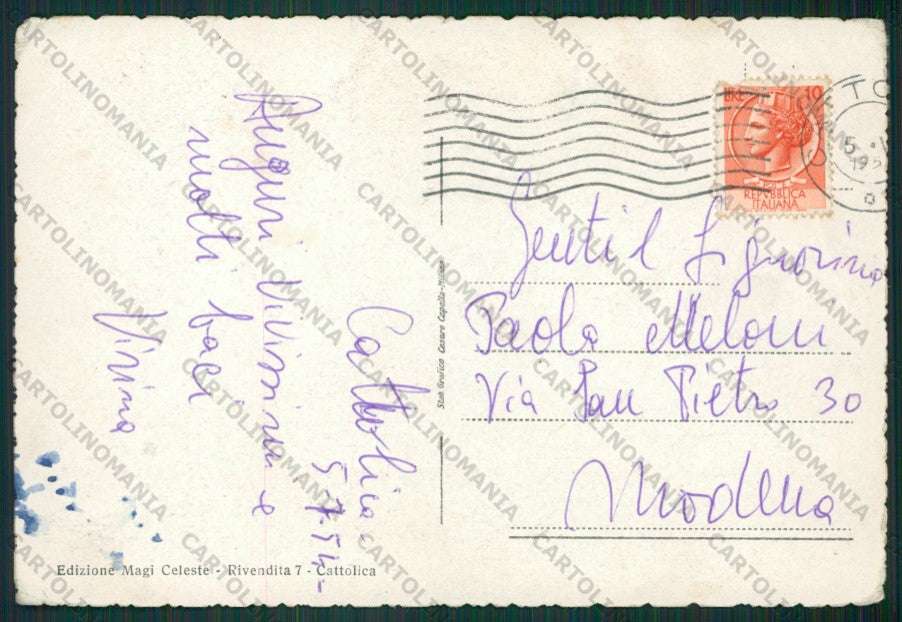 Cattolica
5-7-54-
Auguri vivissimi e
molti baci
Vivina
LIRE 10
REPUBBLICA
ITALIANA
Gentil Signorina
Paola Meloni
Via San Pietro 30
Modena
Stab. Grafico Cesare Capello - Milano
Edizione Magi Celeste - Rivendita 7 - Cattolica
CARTOLINOMANIA